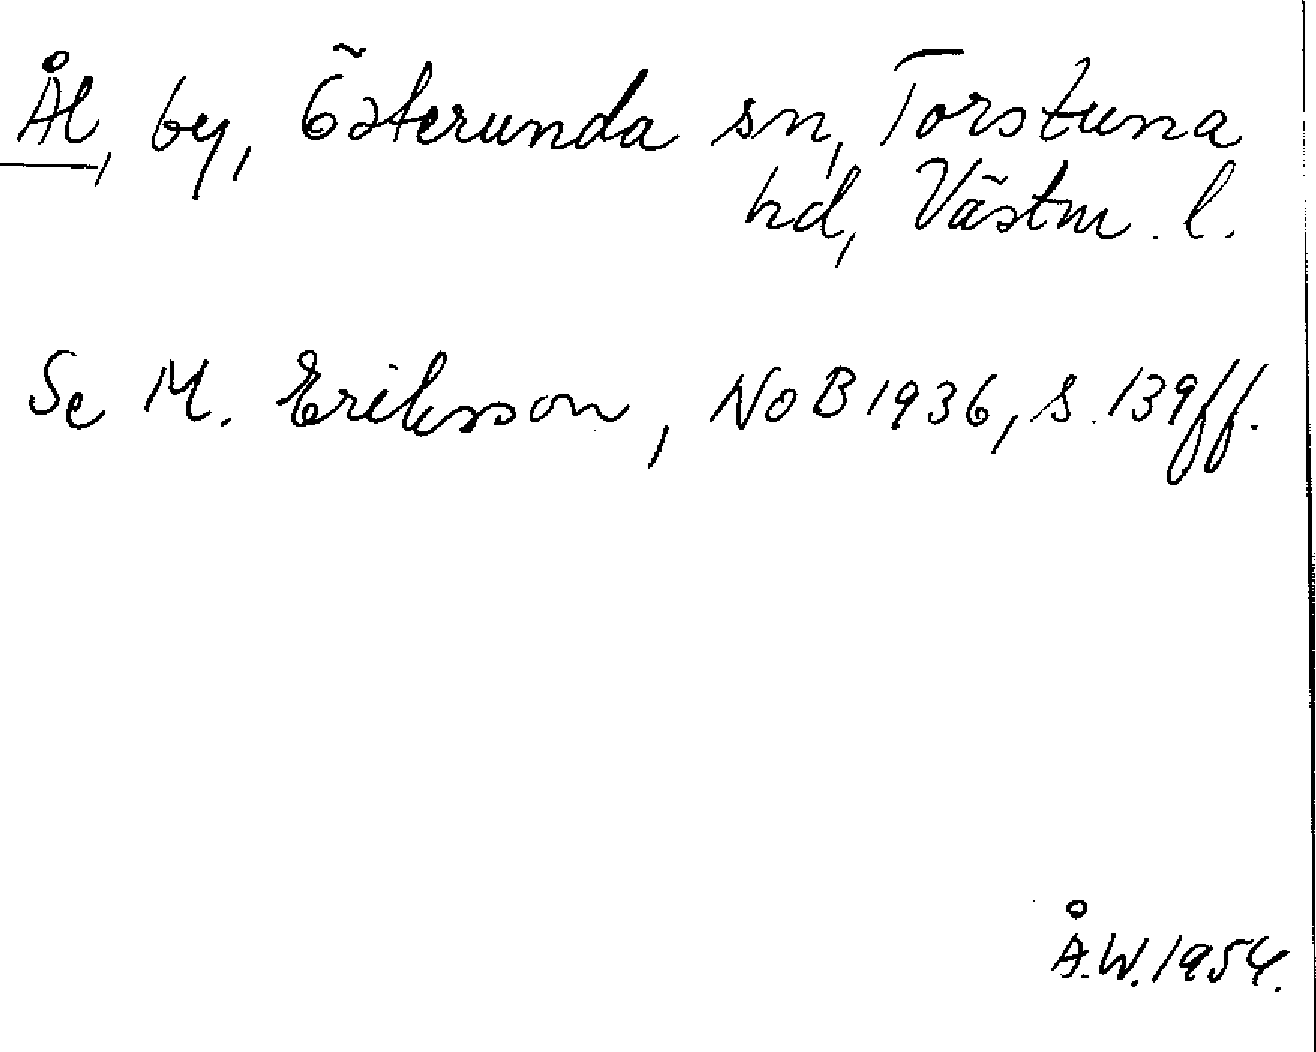 Ål, by, Österunda sn, Torstuna
hd, Västm. l.
Se M. Eriksson, NoB 1936, s. 139 ff.
Å.W. 1954.